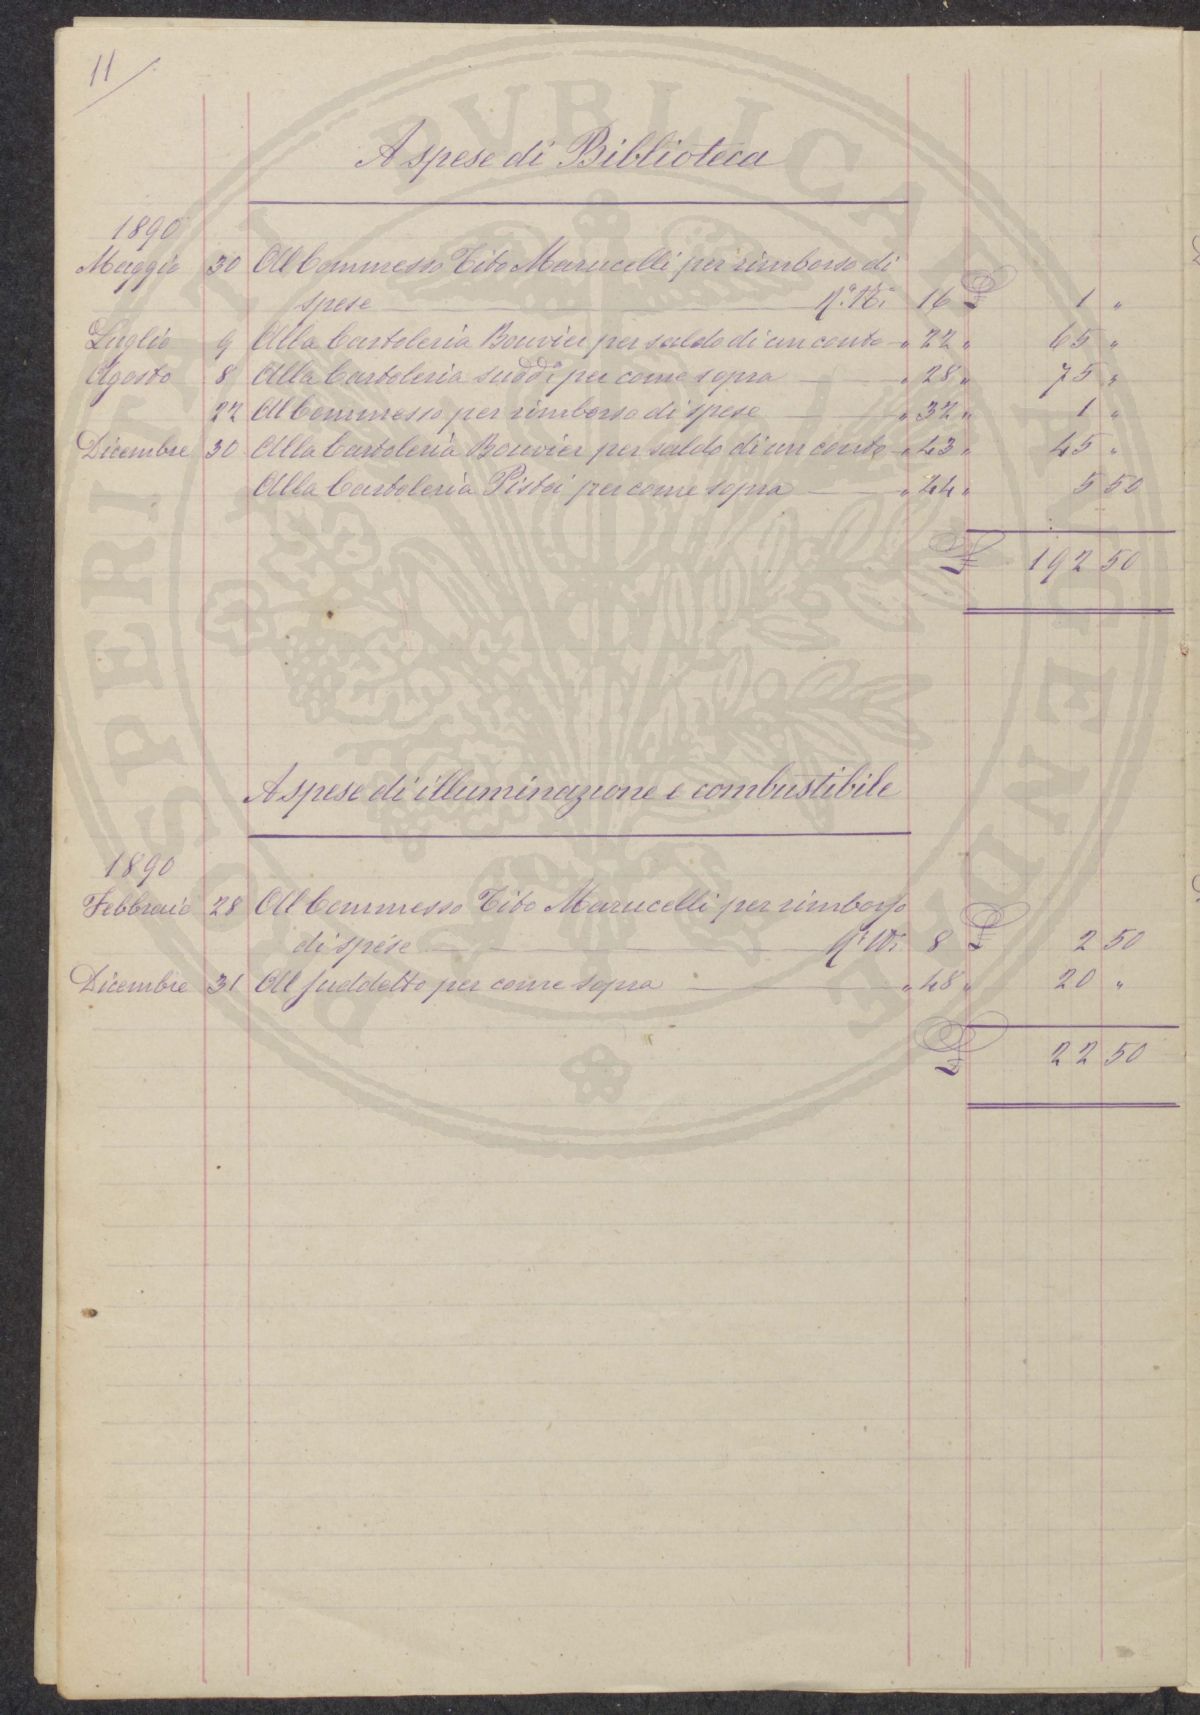 11
A spese di Biblioteca
1890
Maggio 30 Al Commesso Tito Marucelli per rimborso di
spese 16 £ 1 „
Luglio 9 Alla Cartoleria Bouvier per saldo di un conto „ 22 „ 65 „
Agosto 8 Alla Cartoleria sudd.a per come sopra „ 28 „ 75 „
22 Al Commesso per rimborso di spese „ 32 „ 1 „
Dicembre 30 Alla Cartoleria Bouvier per saldo di un conto „ 43 „ 45 „
Alla Cartoleria Pistoi per come sopra „ 44 „ 5 50
£ 192 50
A spese di illuminazione e combustibile
1890
Febbraio 28 Al Commesso Tito Marucelli per rimborso
di spese 8 £ 2 50
Dicembre 31 Al suddetto per come sopra „ 48 „ 20 „
£ 22 50
PROSPERITATI PVBLICAE AVGENDAE